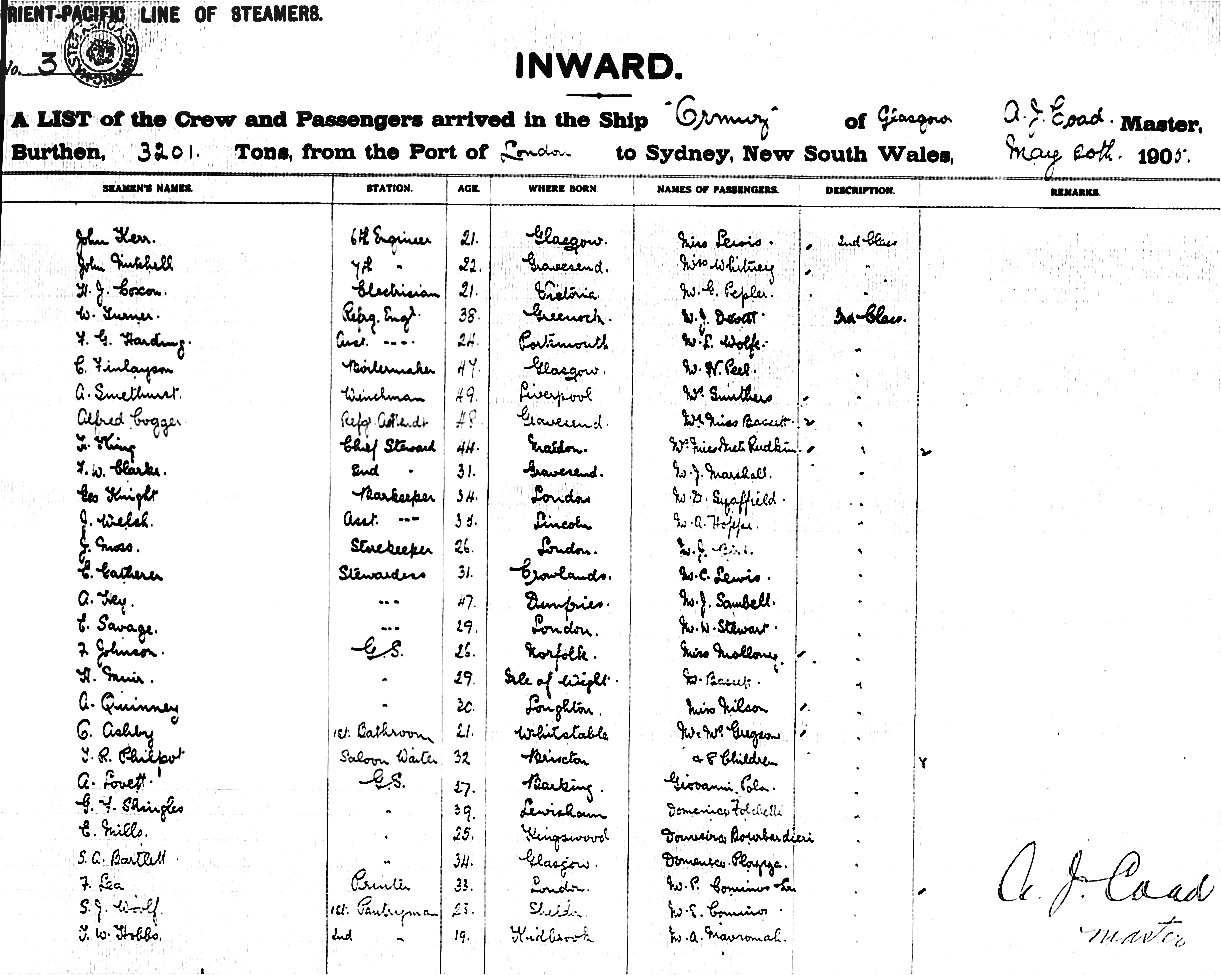 RIENT-PACIFIC LINE OF STEAMERS.
No. 3
INWARD.
A LIST of the Crew and Passengers arrived in the Ship "Ormuz" of Glasgow A. J. Coad. Master,
Burthen, 3201. Tons, from the Port of London to Sydney, New South Wales, May 20th. 1905.
SEAMEN'S NAMES. STATION. AGE. WHERE BORN NAMES OF PASSENGERS. DESCRIPTION. REMARKS.
John Kerr. 6th Engineer 21. Glasgow. Miss Lewis. 2nd Class
John Mitchell 7th " 22. Gravesend. Miss Whitney "
H. J. Coxon. Electrician 21. Victoria Mr. E. Pepler. "
W. Turner. Refrg. Engr. 38. Greenock. Mr. J. 3rd Class.
F. G. Harding. Asst. ---- 24. Portsmouth Mr. L. Wolfe. "
C. Finlayson Boilermaker 47. Glasgow. Mr. W. Peel. "
A. Smethurst. Winchman 49. Liverpool Mrs. Smithers "
Alfred Cogger Refgr. 48. Gravesend. Mrs. Miss 2 "
King Chief Steward 44. Maldon. Rudkin. " 2
F. W. Clarke. 2nd " 31. Gravesend. Mr. J. Marshall. "
Geo Knight Barkeeper 34. London Mr. "
J. Welsh. Asst. --- 35. Lincoln Mr. A. "
J. Moss. Storekeeper 26. London. Mr. J. "
E. Catherer Stewardess 31. Crowlands. Mr. C. Lewis. "
A. Ley. --- 47. Dumfries. Mr. J. Sambell. "
E. Savage. --- 29. London. Mr. W. Stewart "
F. Johnson. G.S. 26. Norfolk. Miss Molloney. "
H. Muir. " 29. Isle of Wight. Mr. "
A. Quinney " 30. Loughton. Miss Nilson "
C. Ashby 1st. Bathroom 21. Whitstable Mr. & Mrs. Gregson "
T. R. Philpot Saloon Waiter 32 Brixton & 8 Children " 8
A. Lovett. G.S. 27. Barking. Giovanni Pola. "
G. F. Shingles " 39. Lewisham Domenico "
E. Mills. " 25. Kingswood Bombardieri "
S. A. Bartlett " 34. Glasgow. Domenico "
F. Lea Printer 33. London. Mr. P. Cominos "
S. J. Woolf. 1st. Pantryman 23. Mr. E. Cominos "
T. W. Hobbs. 2nd " 19. Kidbrook Mr. A. "
A. J. Coad
Master